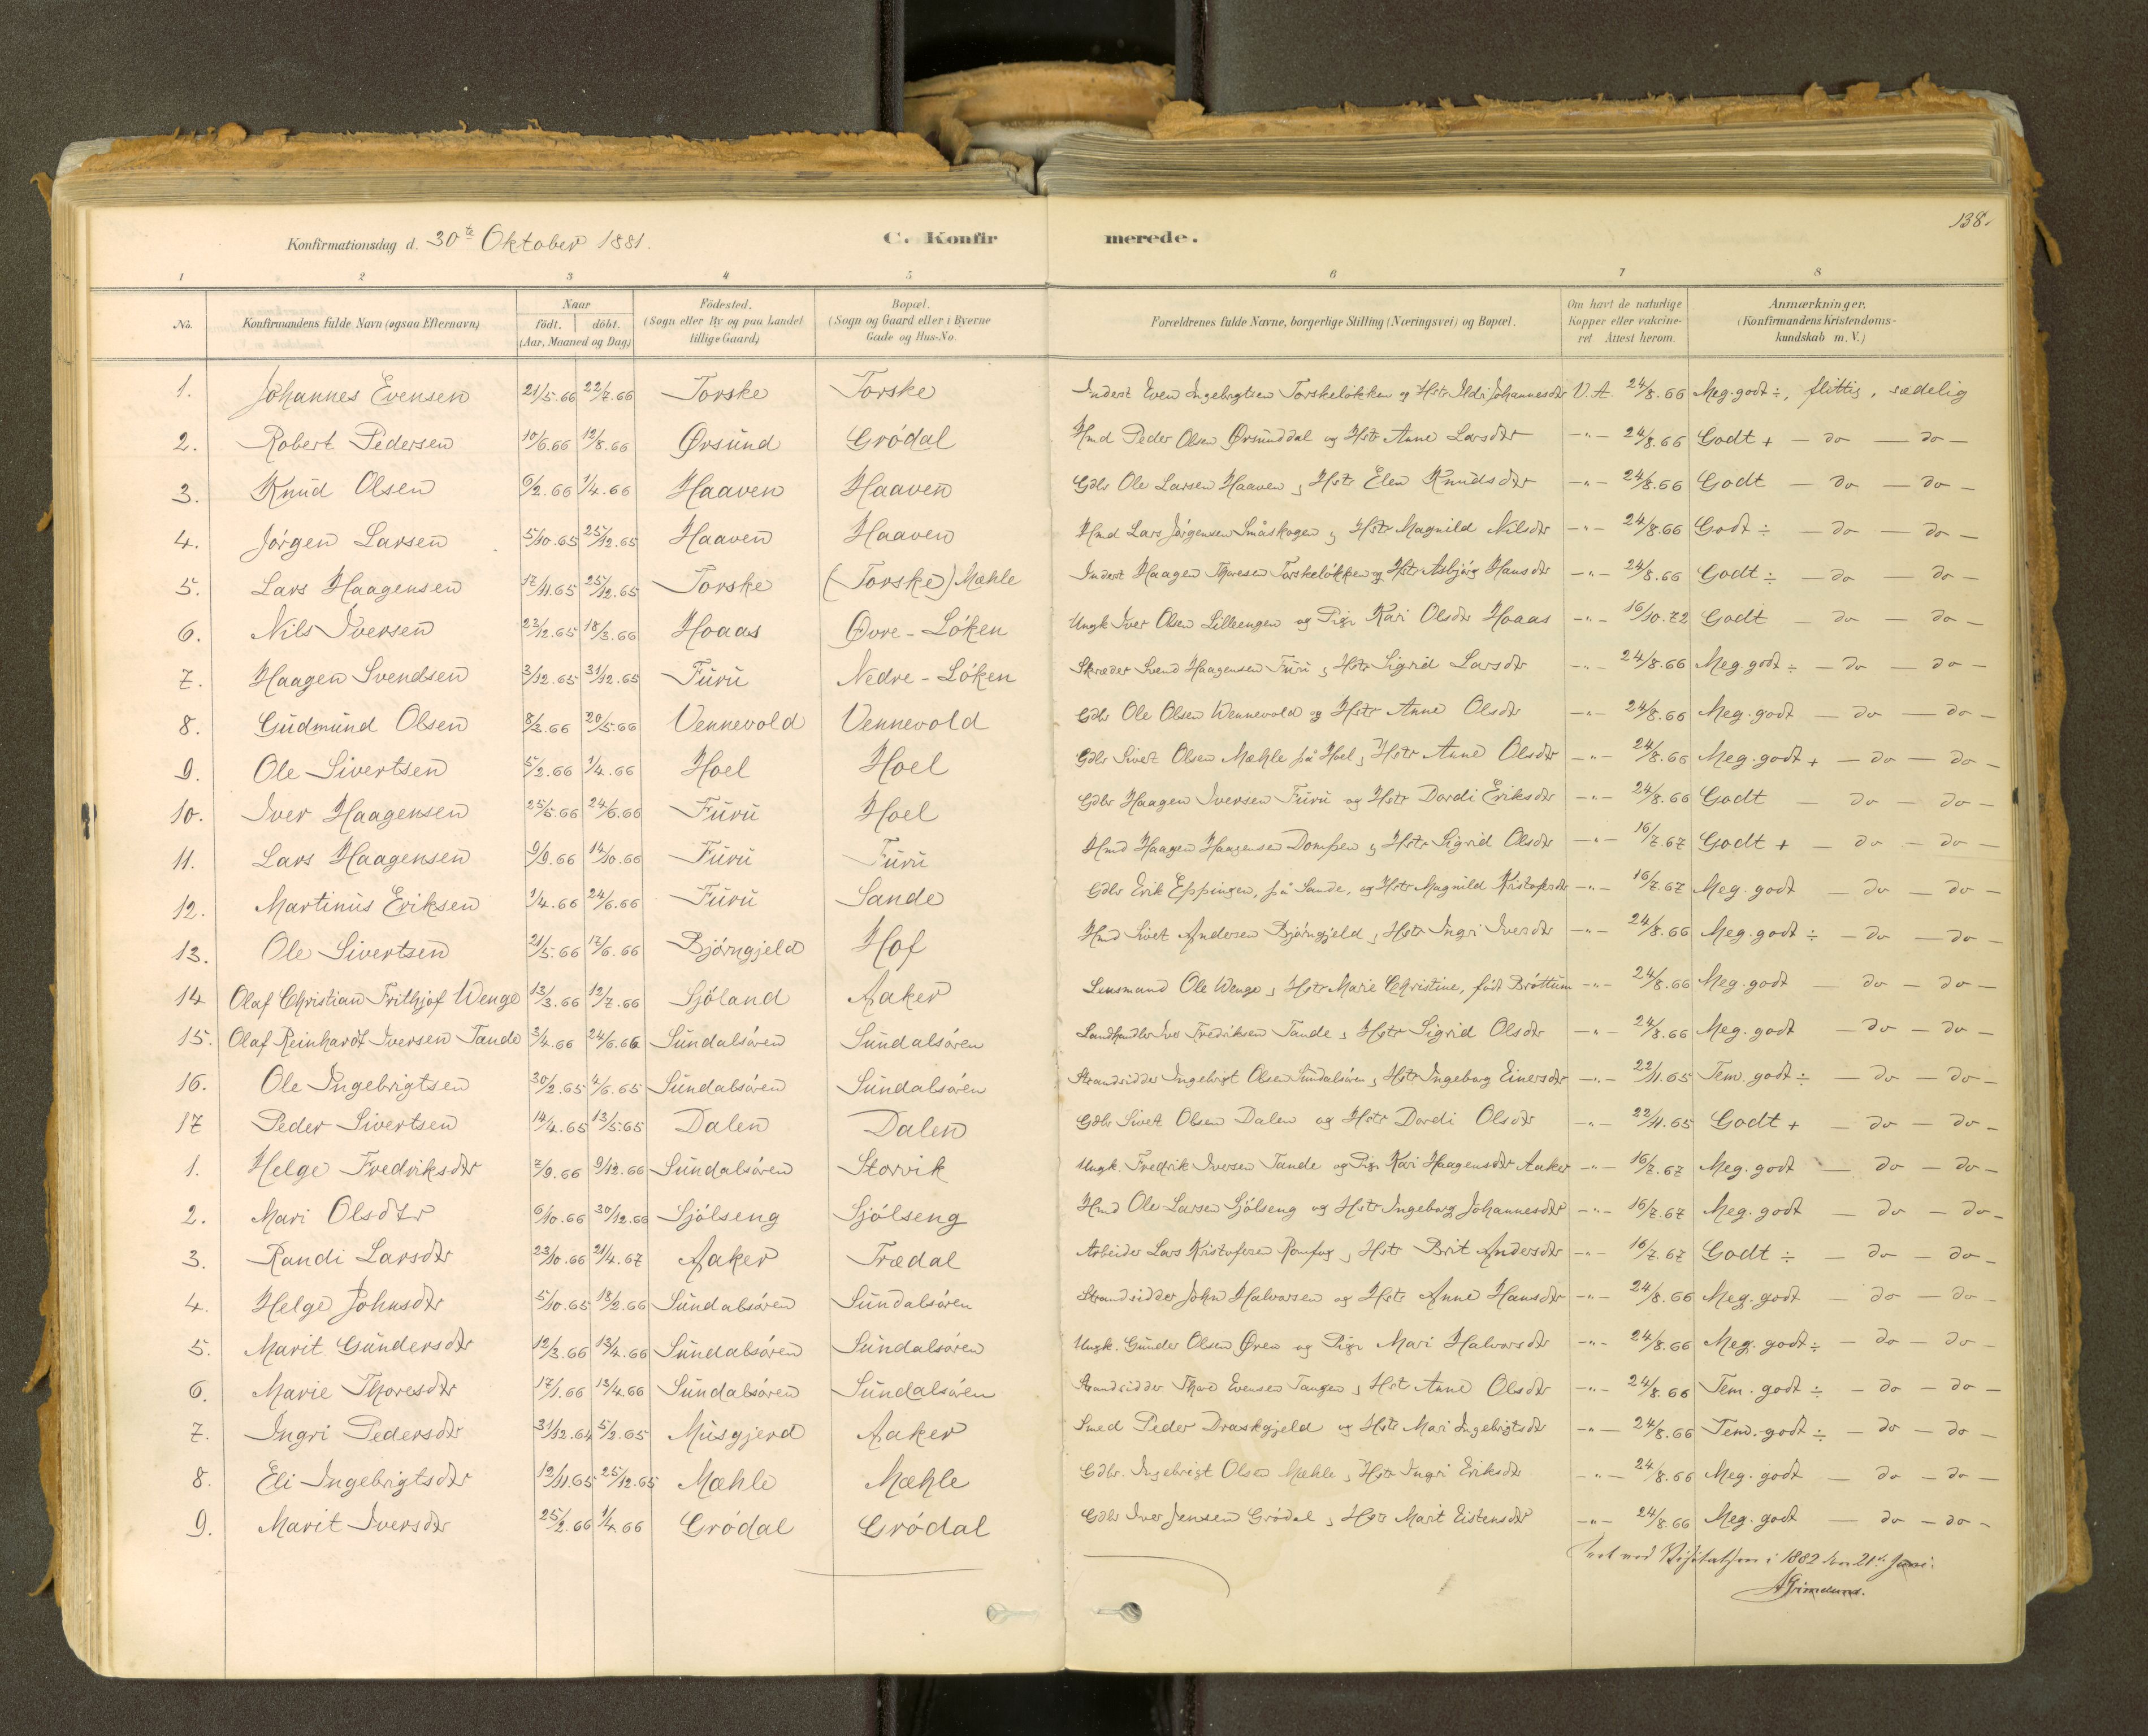 138.
Konfirmationsdag d. 30te Oktober 1881. C. Konfirmerede.
1 2 3 4 5 6 7 8
No. Konfirmandens fulde Navn (ogsaa Efternavn) Naar födt. döbt. (Aar, Maaned og Dag) Födested. (Sogn eller By og paa Landet tillige Gaard) Bopæl. (Sogn og Gaard eller i Byerne Gade og Hus-No. Forældrenes fulde Navne, borgerlige Stilling (Næringsvei) og Bopæl. Om havt de naturlige Kopper eller vakcineret Attest herom. Anmærkninger. (Konfirmandens Kristendomskundskab m.V.)
1. Johannes Evensen 21/5.66 22/7.66 Torske Torske Inderst Even Ingebrigtsen Torskeløkken og Hstr Ildri Johannesdtr V.A. 24/8.66 Meg. godt ÷, flittig, sædelig
2. Robert Pedersen 10/6.66 12/8.66 Ørsund Grödal Hmd Peder Olsen Ørsunddal og Hstr Anne Larsdtr -"- 24/8.66 Godt + - do - do -
3. Knud Olsen 6/2.66 1/4.66 Haaven Haaven Gdbr Ole Larsen Haaven, Hstr Elen Knudsdtr -"- 24/8.66 Godt - do - do -
4. Jörgen Larsen 5/10.65 25/12.65 Haaven Haaven Hmd Lars Jörgensen Småskogen, Hstr Magnild Nilsdtr -"- 24/8.66 Godt ÷ - do - do -
5. Lars Haagensen 17/11.65 25/12.65 Torske (Torske) Mæhle Inderst Haagen Thoresen Torskelökken og Hstr Asbjörg Hansdtr -"- 24/8.66 Godt ÷ - do - do -
6. Nils Iversen 23/12.65 18/3.66 Hoaas Øvre-Löken Ungk Iver Olsen Lilleengen og Pige Kari Olsdtr Hoaas -"- 16/10.72 Godt - do - do -
7. Haagen Svendsen 3/12.65 31/12.65 Furu Nedre-Löken Skræder Svend Haagensen Furu, Hstr Sigrid Larsdtr -"- 24/8.66 Meg. godt ÷ - do - do -
8. Gudmund Olsen 8/3.66 20/5.66 Vennevold Vennevold Gdbr Ole Olsen Wennevold og Hstr Anne Olsdtr -"- 24/8.66 Meg. godt - do - do -
9. Ole Sivertsen 5/2.66 1/4.66 Hoel Hoel Gdbr Sivert Olsen Mæhle på Hoel, Hstr Anne Olsdtr -"- 24/8.66 Meg. godt + - do - do -
10. Iver Haagensen 25/5.66 24/6.66 Furu Hoel Gdbr Haagen Iversen Furu og Hstr Dordi Eriksdtr -"- 24/8.66 Godt - do - do -
11. Lars Haagensen 9/9.66 14/10.66 Furu Furu Hmd Haagen Haagensen Dompen, Hstr Sigrid Olsdtr -"- 16/7.67 Godt + - do - do -
12. Martinus Eriksen 1/4.66 24/6.66 Furu Sande Gdbr Erik Eppingen, på Sande, og Hstr Magnild Kristofersdtr -"- 16/7.67 Meg. godt - do - do -
13. Ole Sivertsen 21/5.66 17/6.66 Björngjeld Hof Hmd Sivert Andersen Björngjeld, Hstr Ingri Iversdtr -"- 24/8.66 Meg. godt ÷ - do - do -
14 Olaf Christian Frithjof Wenge 13/3.66 12/7.66 Sjöland Aaker Lensmand Ole Wenge, Hstr Marie Christine, född Bröttum -"- 24/8.66 Meg. godt - do - do -
15. Olaf Reinhardt Iversen Tande 3/4.66 24/6.66 Sundalsören Sundalsören Landhandler Iver Fredriksen Tande, Hstr Sigrid Olsdtr -"- 24/8.66 Meg. godt - do - do -
16. Ole Ingebrigtsen 30/2.65 4/6.65 Sundalsören Sundalsören Strandsidder Ingebrigt Olsen Sundalsören, Hstr Ingeborg Einersdtr -"- 22/11.65 Tem. godt ÷ - do - do -
17 Peder Sivertsen 14/4.65 13/5.65 Dalen Dalen Gdbr Sivert Olsen Dalen og Hstr Dordi Olsdtr -"- 22/11.65 Godt + - do - do -
1. Helge Fredriksdtr 7/9.66 9/12.66 Sundalsören Storvik Ungk. Fredrik Iversen Tande og Pige Kari Haagensdtr Aaker -"- 16/7.67 Meg. godt - do - do -
2. Mari Olsdtr 6/10.66 30/12.66 Sjölseng Sjölseng Hmd Ole Larsen Sjölseng og Hstr Ingeborg Johannesdtr -"- 16/7.67 Meg. godt - do - do -
3. Randi Larsdtr 23/10.66 21/4.67 Aaker Trædal Arbeider Lars Kristofersen Romfog, Hstr Brit Andersdtr -"- 16/7.67 Godt ÷ - do - do -
4. Helge Johnsdtr 5/10.65 18/2.66 Sundalsören Sundalsören Strandsidder John Halvorsen og Hstr Anne Hansdtr -"- 24/8.66 Meg. godt - do - do -
5. Marit Gundersdtr 12/3.66 13/4.66 Sundalsören Sundalsören Ungk. Gunder Olsen Øren og Pige Mari Halvorsdtr -"- 24/8.66 Meg. godt ÷ - do - do -
6. Marie Thoresdtr 17/1.66 13/4.66 Sundalsören Sundalsören Strandsidder Thore Evensen Tangen, Hst Anne Olsdtr -"- 24/8.66 Tem. godt ÷ - do - do -
7. Ingri Pedersdtr 31/12.64 5/2.65 Musgjerd Aaker Smed Peder Draskgjeld og Hstr Mari Ingebrigtsdtr -"- 24/8.66 Tem. godt ÷ - do - do -
8. Eli Ingebrigtsdtr 12/11.65 25/12.65 Mæhle Mæhle Gdbr. Ingebrigt Olsen Mæhle, Hstr Ingri Eriksdtr -"- 24/8.66 Meg. godt - do - do -
9. Marit Iversdtr 25/2.66 1/4.66 Grödal Grödal Gdbr Iver Jensen Grödal, Hstr Marit Eistensdtr -"- 24/8.66 Meg. godt - do - do -
ved Visitatsen i 1882 den 21de Juni.
A Grimelund.